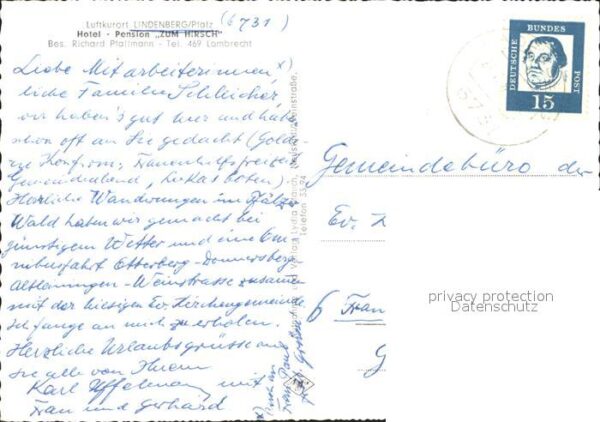 Luftkurort LINDENBERG/Pfalz (6731)
Hotel - Pension „ZUM HIRSCH"
Bes. Richard Pfaffmann - Tel. 469 Lambrecht
Liebe Mitarbeiterinnen, x)
liebe Familien Schleicher,
wir haben's gut hier und haben
schon oft an Sie gedacht (Golde-
ne Konfirm., Frauenhilfsfreizeit
Gemeindeabend, Lukasboten).
Herrliche Wanderungen im Pfälzer
Wald haben wir gemacht bei
günstigem Wetter und eine
Donnersberg-
Altleiningen - Weinstrasse zusammen
mit der hiesigen Ev. Kirchengemeinde
an mich zu erholen.
Herzliche Urlaubsgrüsse an
Sie alle von Ihrem
Karl mit
Frau und Gerhard
x)
Frau Paul
Telefon 33 24
DEUTSCHE
BUNDES
POST
15
Gemeindebüro der
Ev. L
6 Fran
G
privacy protection
Datenschutz